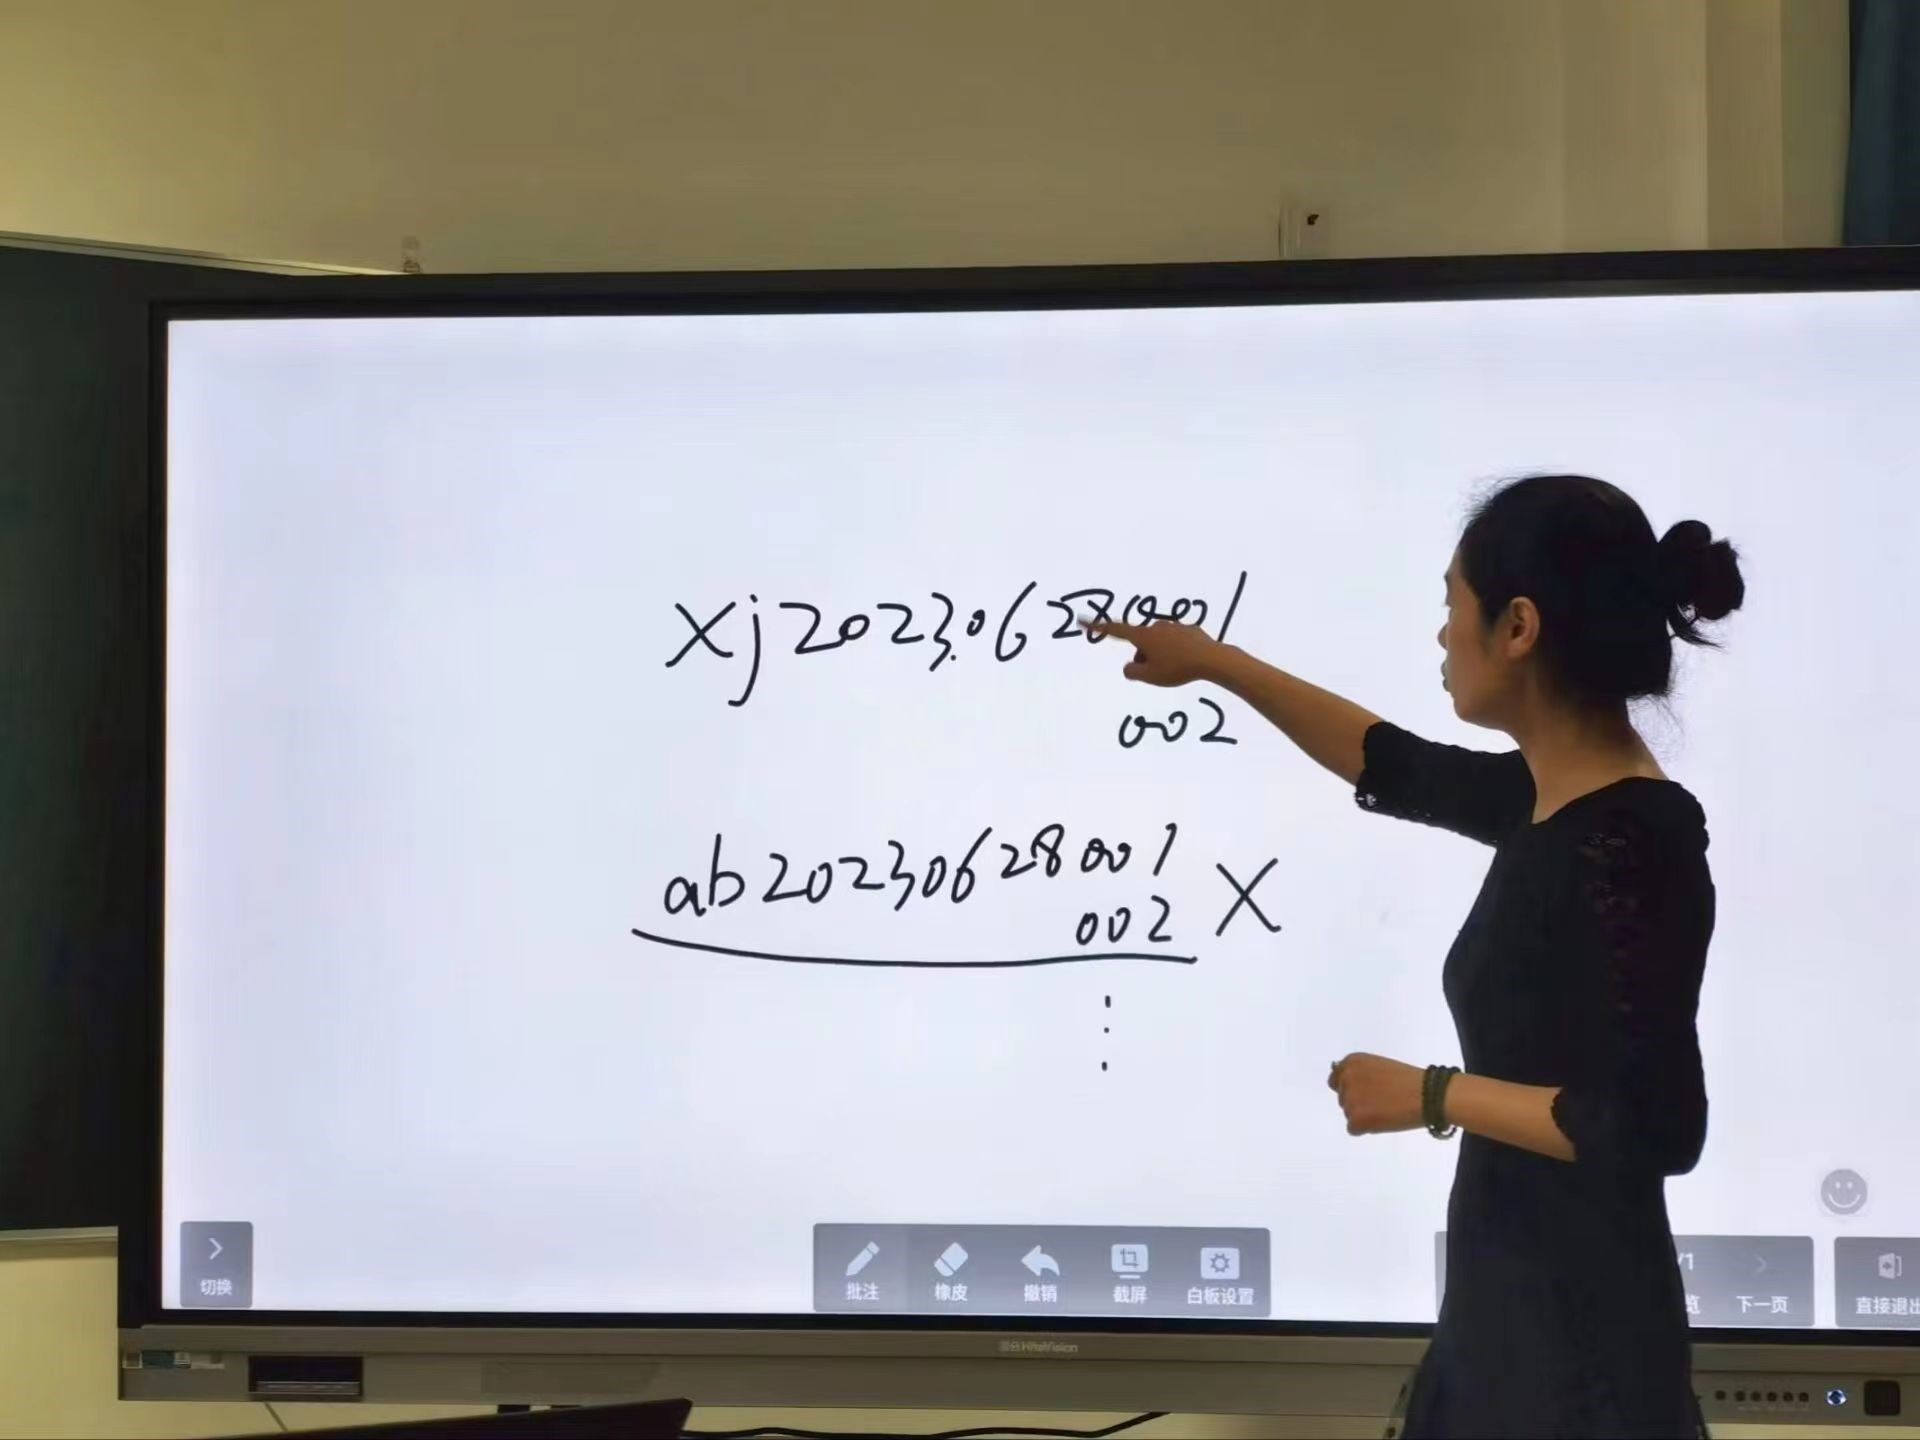 xj20230628001
002
ab20230628001
002 X
切换
批注 橡皮 撤销 截屏 白板设置
/1
览 下一页
直接退出
HiteVision